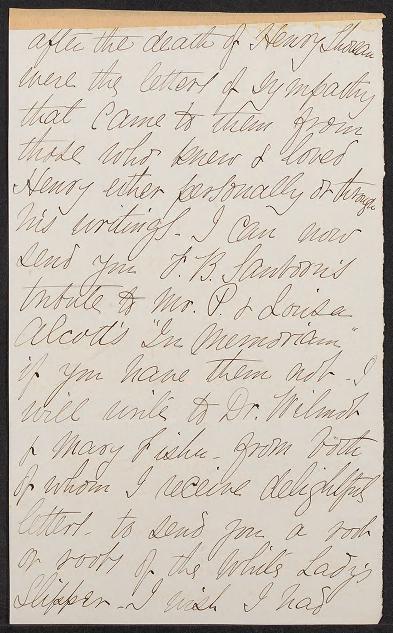 after the death of Henry Thoreau
were the letters of sympathy
that came to them from
those who knew & loved
Henry either personally or through
his writings. I can now
send you F. B. Sanborn's
tribute to Mr. P. & Louisa
Alcott's "In Memoriam"
if you have them not - I
will write to Dr. Wilmot
& Mary Fisher - from both
of whom I receive delightful
letters - to send you a root
or roots of the White Lady's
Slipper - I wish I had